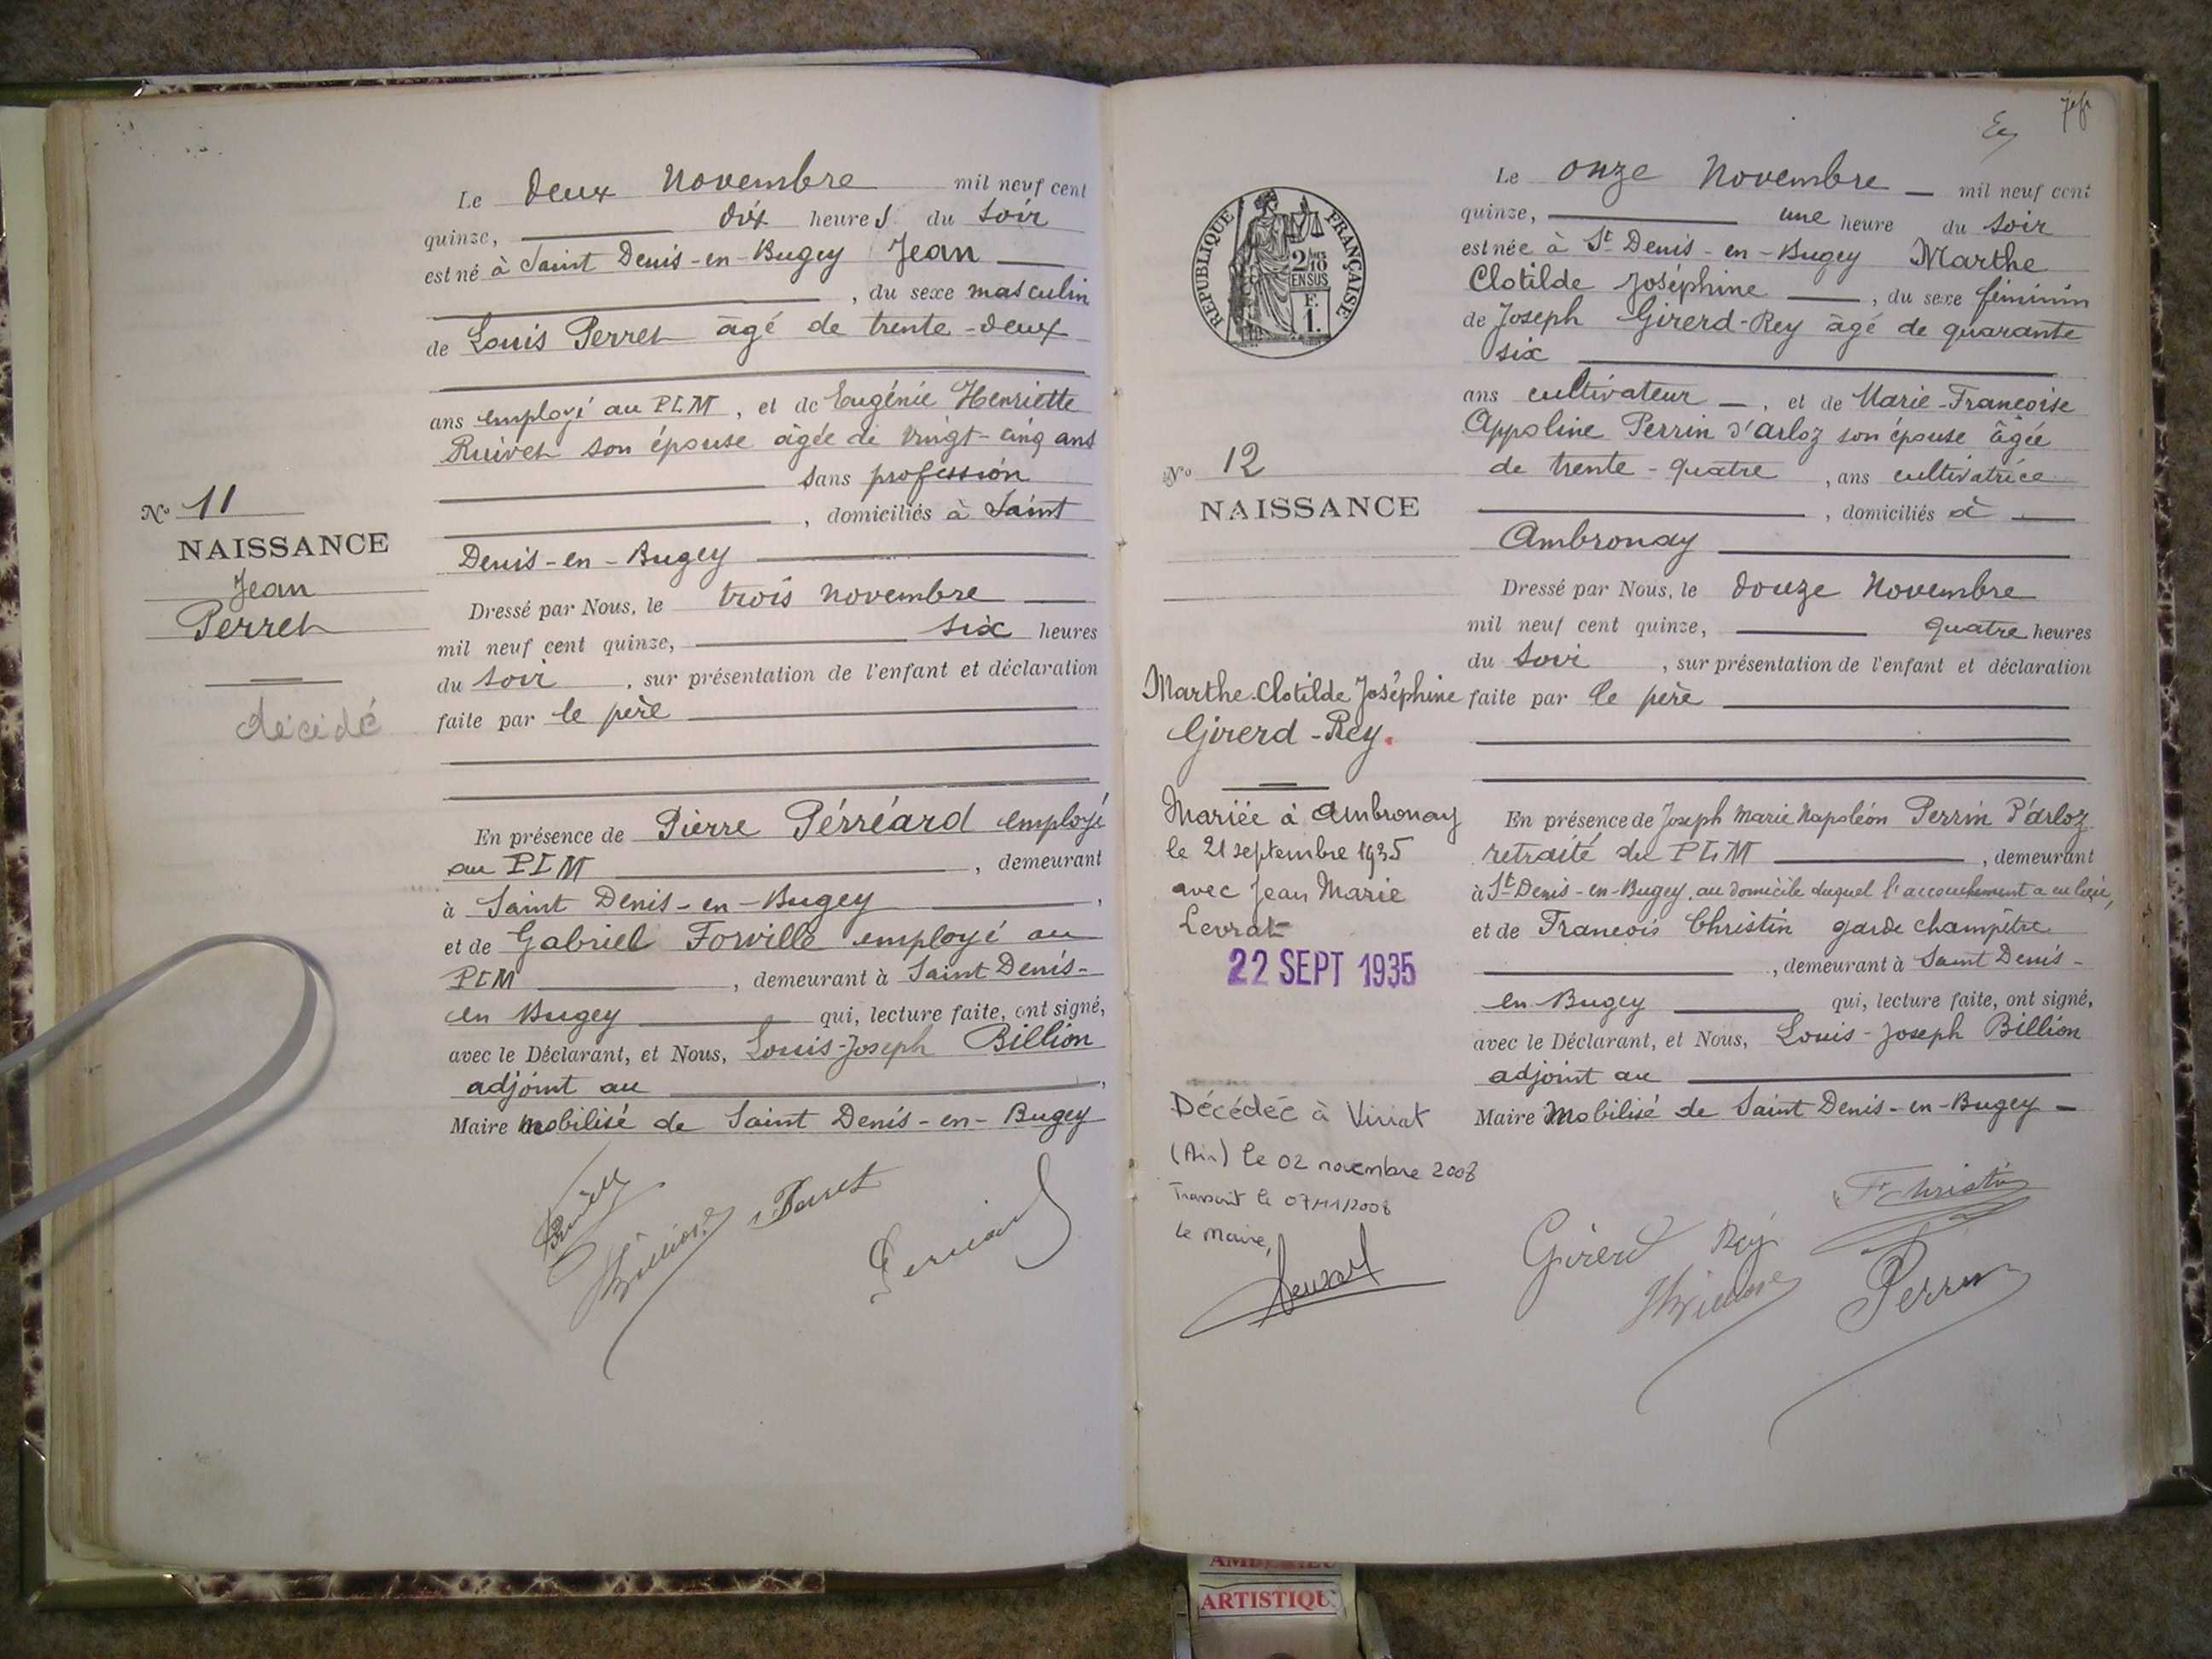 Le deux Novembre mil neuf cent
quinze, dix heures du soir
est né à Saint Denis-en-Bugey Jean
, du sexe masculin
de Louis Perret âgé de trente-deux
ans employé au PLM, et de Eugénie Henriette
Ruivet son épouse âgée de vingt-cinq ans
sans profession
, domiciliés à Saint
Denis-en-Bugey
Dressé par Nous, le trois novembre
mil neuf cent quinze, six heures
du soir, sur présentation de l'enfant et déclaration
faite par le père
En présence de Pierre Pérréard employé
au PLM, demeurant
à Saint Denis-en-Bugey,
et de Gabriel Forville employé au
PLM, demeurant à Saint Denis-
en Bugey qui, lecture faite, ont signé,
avec le Déclarant, et Nous, Louis-Joseph Billion
adjoint au
Maire mobilisé de Saint Denis-en-Bugey
Perret
N° 11
NAISSANCE
Jean
Perret
décédé
Le onze Novembre mil neuf cent
quinze, une heure du soir
est née à St Denis-en-Bugey Marthe
Clotilde Joséphine, du sexe féminin
de Joseph Girerd-Rey âgé de quarante
six
ans cultivateur, et de Marie-Françoise
Appoline Perrin d'arloz son épouse âgée
de trente-quatre, ans cultivatrice
, domiciliés à
Ambronay
Dressé par Nous, le douze Novembre
mil neuf cent quinze, quatre heures
du soir, sur présentation de l'enfant et déclaration
faite par le père
En présence de Joseph Marie Napoléon Perrin d'arloz
retraité du PLM, demeurant
à St Denis-en-Bugey, au domicile duquel l'accouchement a eu lieu,
et de François Christin garde champêtre
, demeurant à Saint Denis-
en-Bugey qui, lecture faite, ont signé,
avec le Déclarant, et Nous, Louis-Joseph Billion
adjoint au
Maire Mobilisé de Saint Denis-en-Bugey
Fs Christin
Girerd Rey
Perrin
RÉPUBLIQUE FRANÇAISE
2/10
EN SUS
F.
1.
N° 12
NAISSANCE
Marthe Clotilde Joséphine
Girerd-Rey.
Mariée à Ambronay
le 21 septembre 1935
avec Jean Marie
Levrat
22 SEPT 1935
Décédée à Viriat
(Ain) le 02 novembre 2008
Transcrit le 07/11/2008
Le Maire,
ARTISTIQU